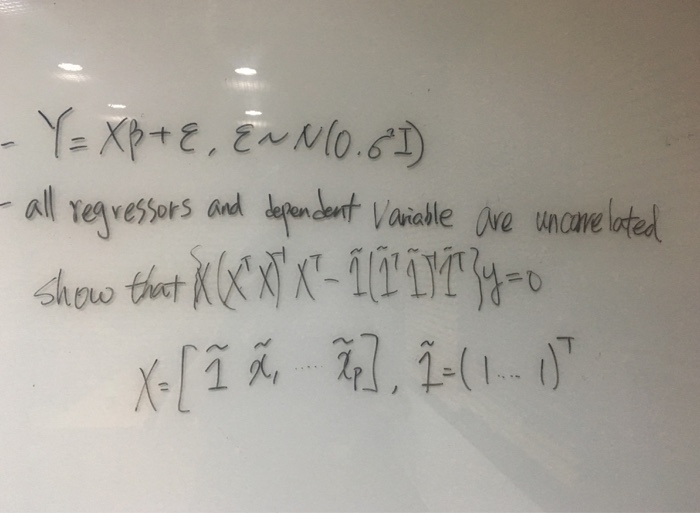 - Y = Xβ + ε, ε ~ N(0. σ²I)
- all regressors and dependent variable are uncorrelated
show that {X(XᵀX)⁻¹Xᵀ - 1̃(1̃ᵀ1̃)⁻¹1̃ᵀ}y = 0
X = [1̃ x̃₁ ... x̃ₚ], 1̃ = (1 ... 1)ᵀ